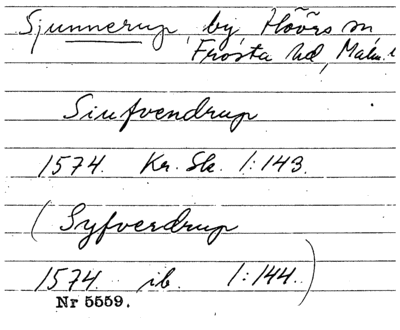 Sjunnerup, by, Höörs sn,
Frosta hd, Malm. l
Siufvendrup
1574. Kr. Sk. 1:143.
(Syfverdrup
1574. ib. 1:144.)
Nr 5559.